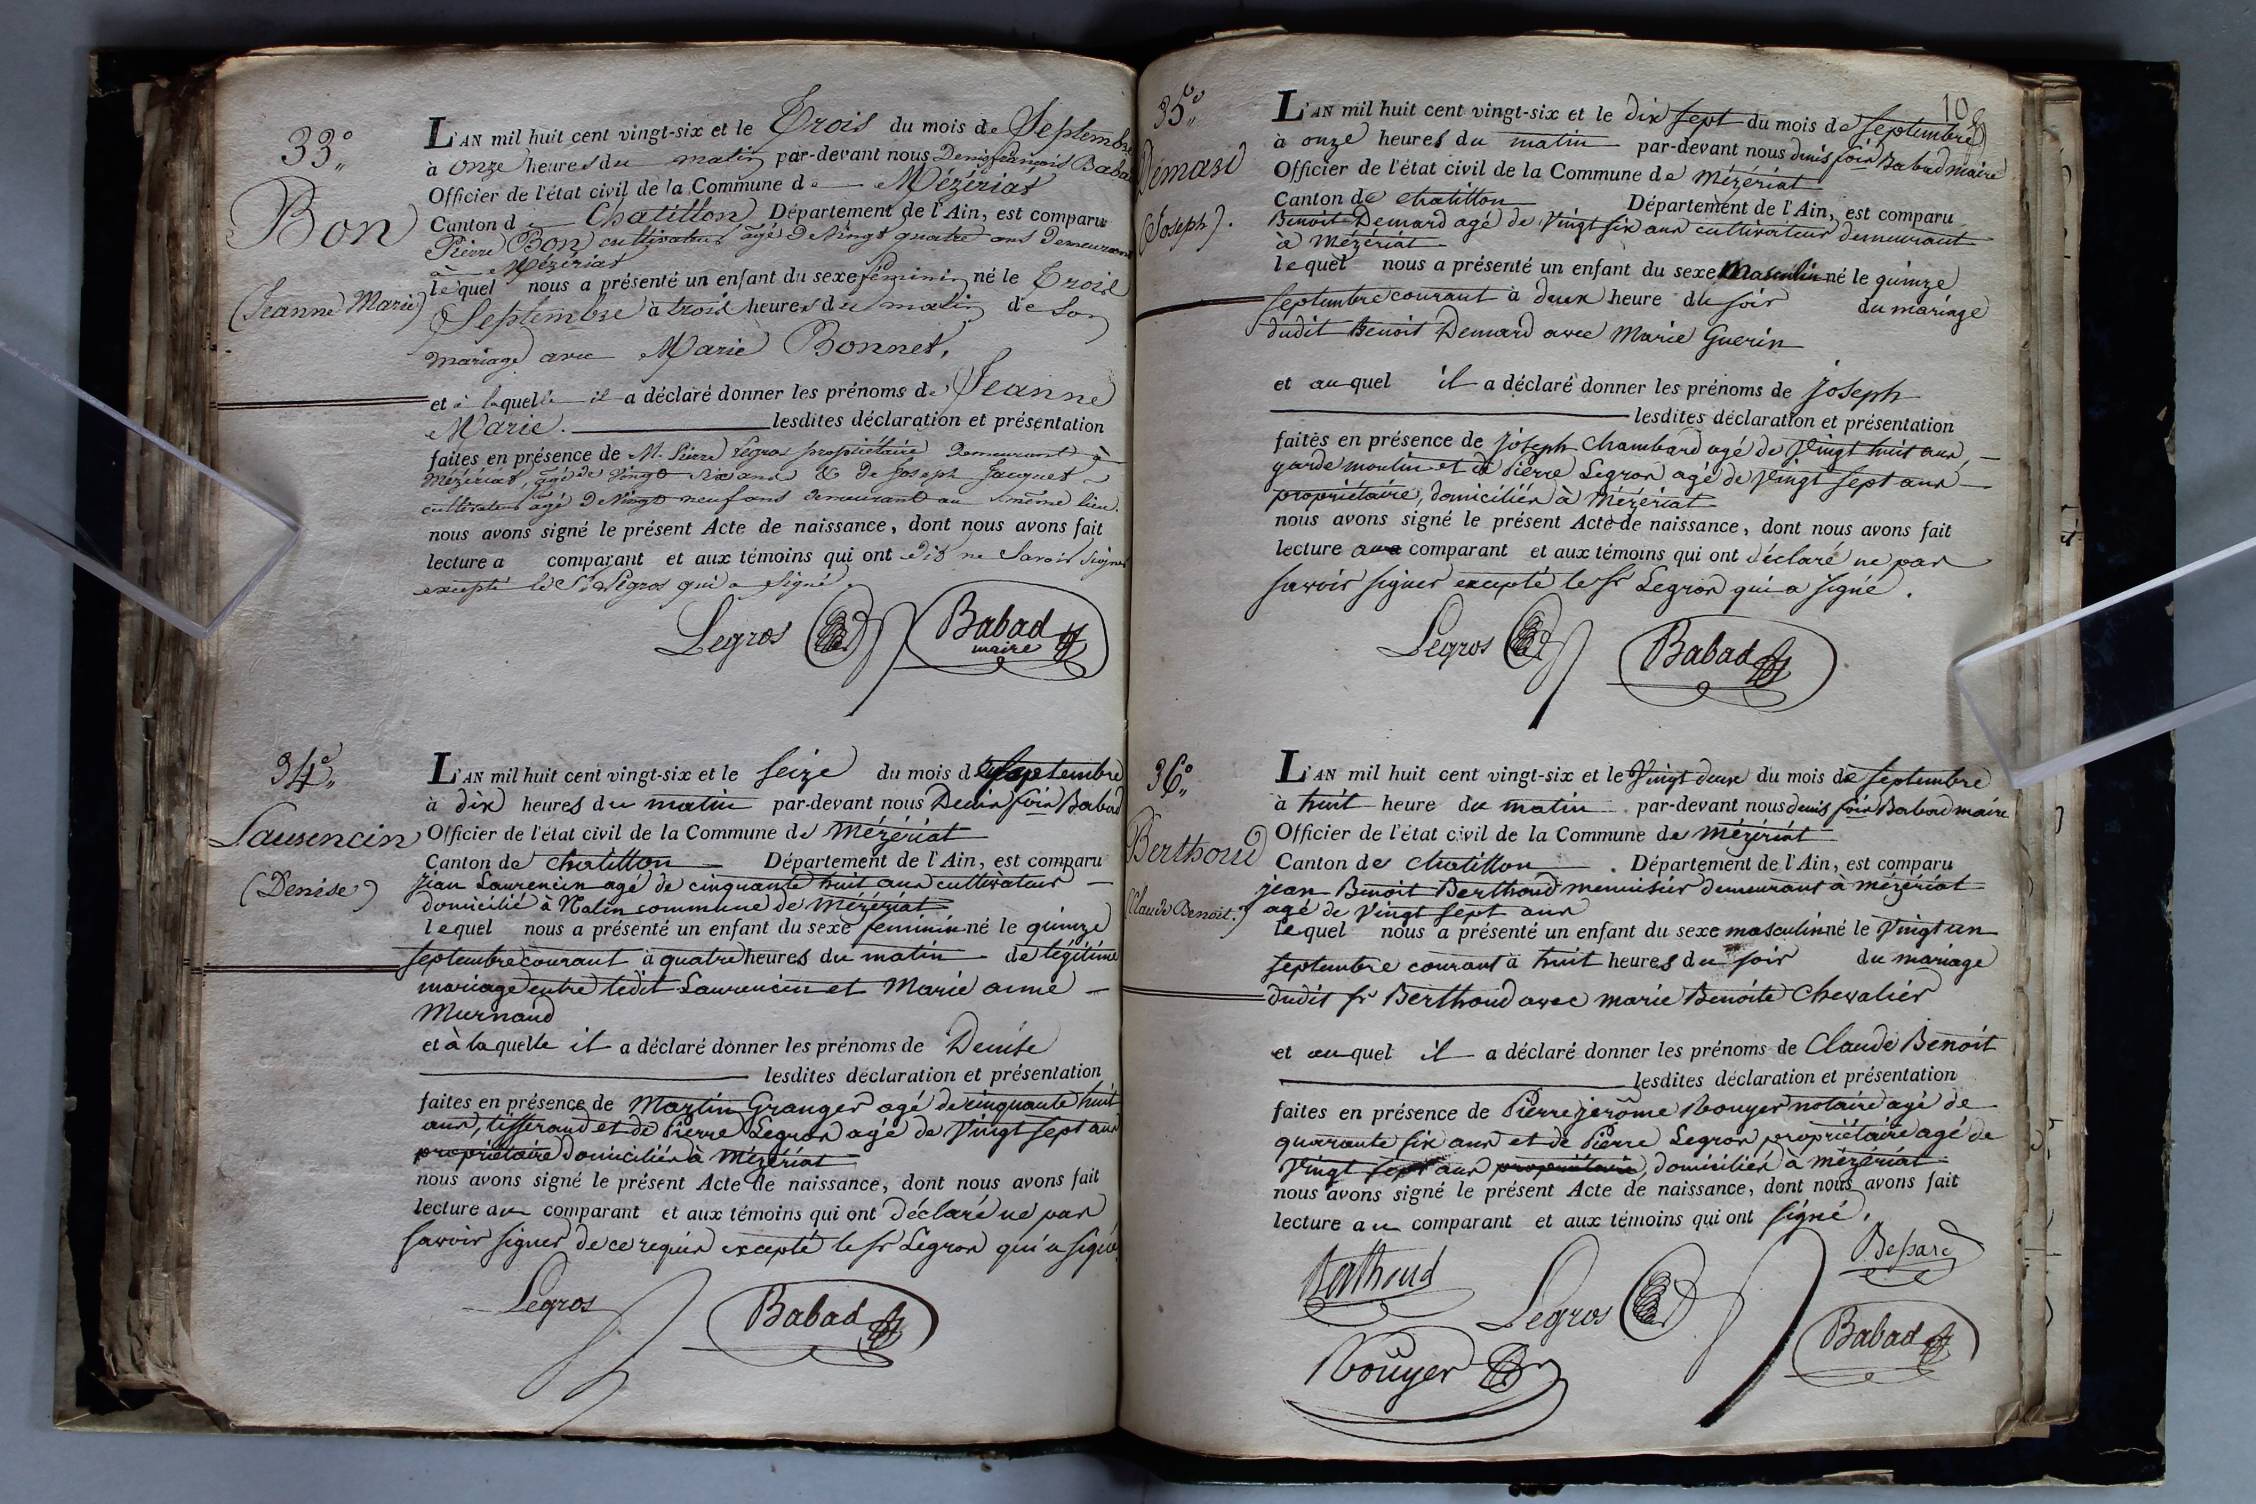 33°
Bon
(Jeanne Marie)
L'AN mil huit cent vingt-six et le Trois du mois de Septembre
à onze heures du matin par-devant nous Denis françois Babad
Officier de l'état civil de la Commune de Mézériat
Canton d Chatillon Département de l'Ain, est comparu
Pierre Bon cultivateur âgé de vingt quatre ans demeurant
à Mézériat
lequel nous a présenté un enfant du sexe féminin né le Trois
Septembre à trois heures du matin de son
mariage avec Marie Bonnet,
et à laquelle il a déclaré donner les prénoms de Jeanne
Marie. lesdites déclaration et présentation
faites en présence de M. Pierre Legros propriétaire demeurant à
Mézériat, âgé de vingt six ans & de Joseph Jacquet
cultivateur âgé de vingt neuf ans demeurant au même lieu.
nous avons signé le présent Acte de naissance, dont nous avons fait
lecture a comparant et aux témoins qui ont dit ne savoir signer
excepté le Sr Legros qui a signé.
Legros Babad
maire
34°
Laurencin
(Denise)
L'AN mil huit cent vingt-six et le seize du mois de septembre
à dix heures du matin par-devant nous Denis fois Babad
Officier de l'état civil de la Commune de Mézériat
Canton de chatillon Département de l'Ain, est comparu
jean Laurencin agé de cinquante huit ans cultivateur
domicilié à commune de Mézériat
lequel nous a présenté un enfant du sexe feminin né le quinze
septembre courant à quatre heures du matin de légitime
mariage entre ledit Laurencin et Marie anne
Murnaud
et à laquelle il a déclaré donner les prénoms de Denise
lesdites déclaration et présentation
faites en présence de Martin Granger agé de cinquante huit
ans, tisserand et de Pierre Legros agé de vingt sept ans
propriétaire domiciliés à Mézériat
nous avons signé le présent Acte de naissance, dont nous avons fait
lecture au comparant et aux témoins qui ont déclaré ne pas
savoir signer de ce requis excepté le sr Legros qui a signé
Legros Babad
108
35°
Démard
(Joseph).
L'AN mil huit cent vingt-six et le dix sept du mois de septembre
à onze heures du matin par-devant nous denis fois Babad maire
Officier de l'état civil de la Commune de Mézériat
Canton de chatillon Département de l'Ain, est comparu
Benoit Demard agé de vingt six ans cultivateur demeurant
à Mézériat
lequel nous a présenté un enfant du sexe masculin né le quinze
septembre courant à deux heure du soir du mariage
dudit Benoit Demard avec Marie Guerin
et auquel il a déclaré donner les prénoms de joseph
lesdites déclaration et présentation
faites en présence de joseph Chambard agé de vingt huit ans,
garde moulin et de Pierre Legros agé de vingt sept ans
propriétaire, domiciliés à Mézériat
nous avons signé le présent Acte de naissance, dont nous avons fait
lecture au comparant et aux témoins qui ont déclaré ne pas
savoir signer excepté le sr Legros qui a signé.
Legros Babad
36°
Berthoud
(Claude Benoit.)
L'AN mil huit cent vingt-six et le vingt deux du mois de septembre
à huit heure du matin par-devant nous denis fois Babad maire
Officier de l'état civil de la Commune de Mézériat
Canton de chatillon Département de l'Ain, est comparu
jean Benoit Berthoud menuisier demeurant à mézériat
agé de vingt sept ans
lequel nous a présenté un enfant du sexe masculin né le vingt un
septembre courant à huit heures du soir du mariage
dudit sr Berthoud avec marie Benoite Chevalier
et auquel il a déclaré donner les prénoms de Claude Benoit
lesdites déclaration et présentation
faites en présence de Pierre jerôme Rouyer notaire agé de
quarante six ans et de Pierre Legros propriétaire agé de
vingt sept ans propriétaire, domiciliés à mézériat
nous avons signé le présent Acte de naissance, dont nous avons fait
lecture au comparant et aux témoins qui ont signé.
Berthoud Legros
Rouyer Babad